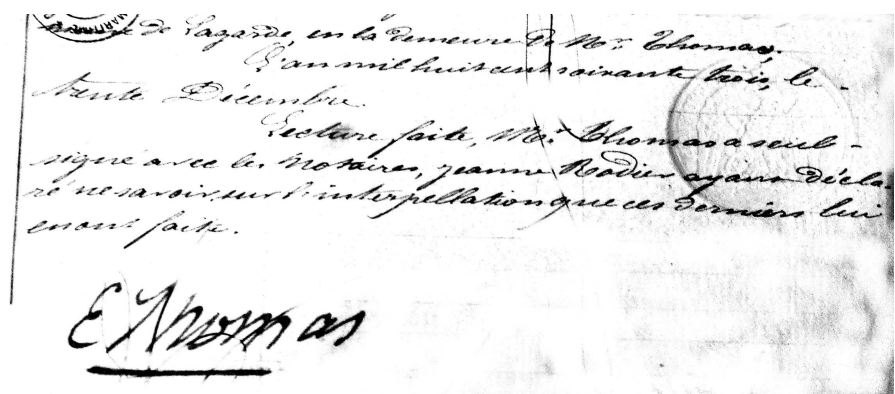 de Lagarde, en la demeure de Mr. Thomas.
L'an mil huit cent soixante trois, le
trente Décembre.
Lecture faite, Mr. Thomas a seul
signé avec les Notaires, jeanne Rodier ayant décla
ré ne savoir, sur l'interpellation que ces derniers lui
en ont faite.
E Thomas